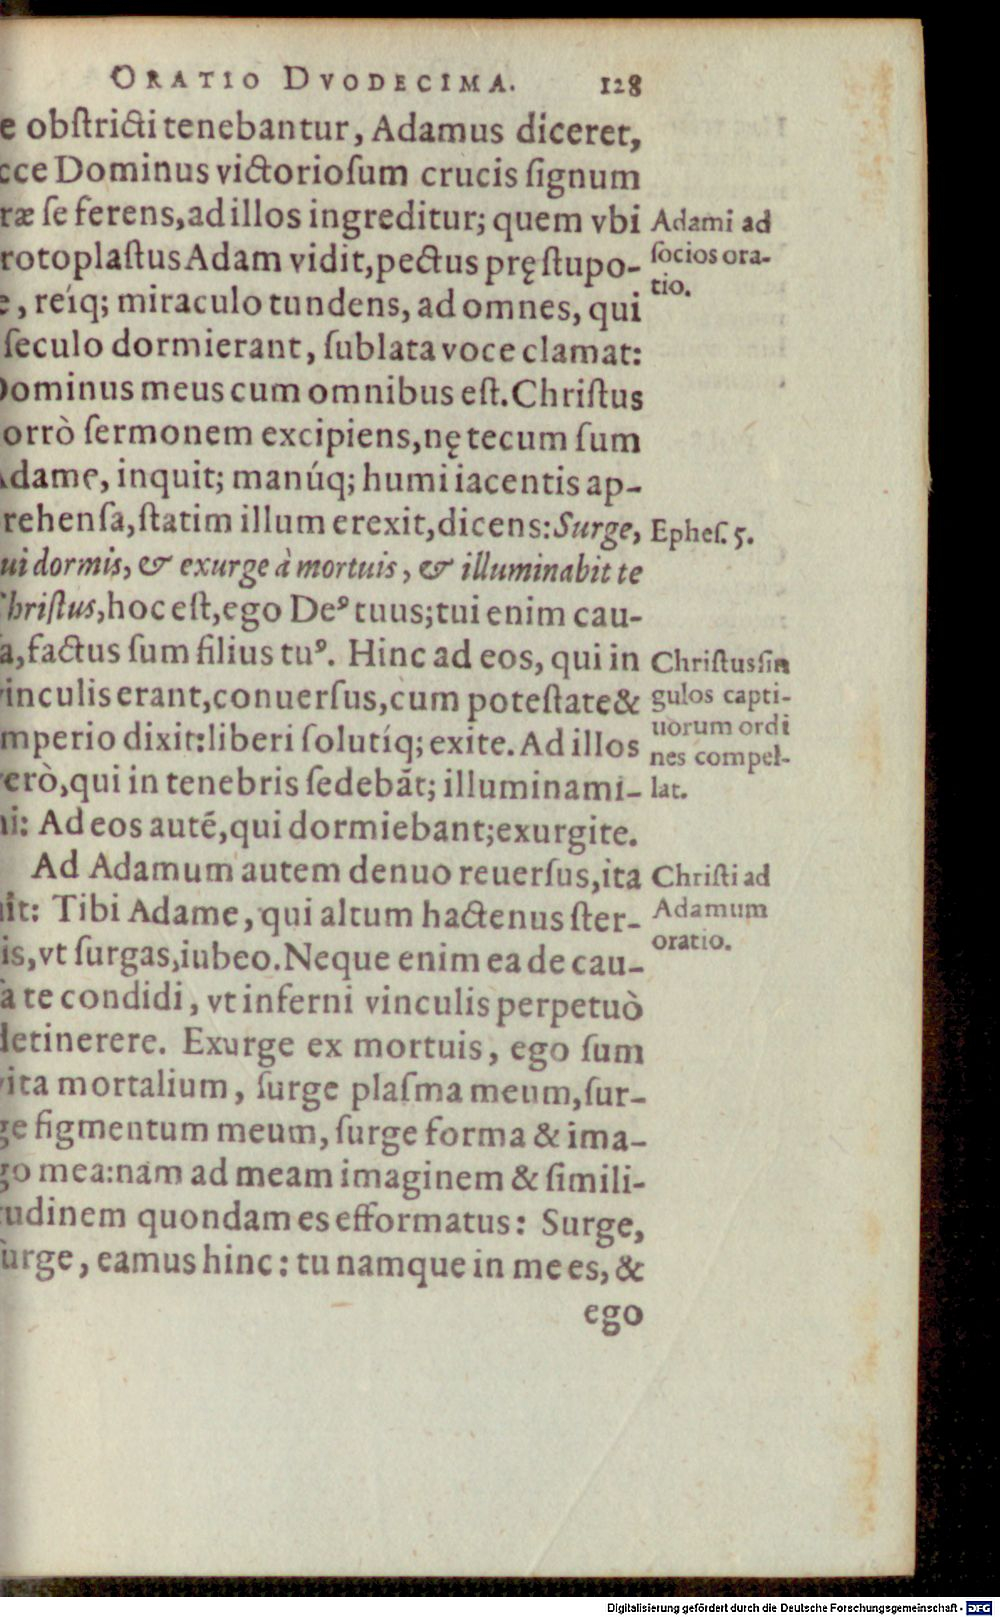 ORATIO DVODECIMA. 128
e obſtricti tenebantur, Adamus diceret,
cce Dominus victorioſum crucis ſignum
ræ ſe ferens, ad illos ingreditur; quem vbi
rotoplaſtus Adam vidit, pectus pręſtupo-
e, reíq; miraculo tundens, ad omnes, qui
ſeculo dormierant, ſublata voce clamat:
Dominus meus cum omnibus eſt. Chriſtus
orrò ſermonem excipiens, nę tecum ſum
Adame, inquit; manúq; humi iacentis ap-
rehenſa, ſtatim illum erexit, dicens: Surge,
ui dormis, & exurge à mortuis, & illuminabit te
Chriſtus, hoc eſt, ego Deꝰ tuus; tui enim cau-
a, factus ſum filius tuꝰ. Hinc ad eos, qui in
vinculis erant, conuerſus, cum poteſtate &
mperio dixit: liberi ſolutíq; exite. Ad illos
erò, qui in tenebris ſedebāt; illuminami-
ni: Ad eos autē, qui dormiebant; exurgite.
Ad Adamum autem denuo reuerſus, ita
it: Tibi Adame, qui altum hactenus ſter-
is, vt ſurgas, iubeo. Neque enim ea de cau-
ſa te condidi, vt inferni vinculis perpetuò
detinerere. Exurge ex mortuis, ego ſum
vita mortalium, ſurge plaſma meum, ſur-
ge figmentum meum, ſurge forma & ima-
go mea: nam ad meam imaginem & ſimili-
tudinem quondam es efformatus: Surge,
ſurge, eamus hinc: tu namque in me es, &
ego
Adami ad
ſocios ora-
tio.
Epheſ. 5.
Chriſtus ſin
gulos capti-
uorum ordi
nes compel-
lat.
Chriſti ad
Adamum
oratio.
Digitalisierung gefördert durch die Deutsche Forschungsgemeinschaft - DFG